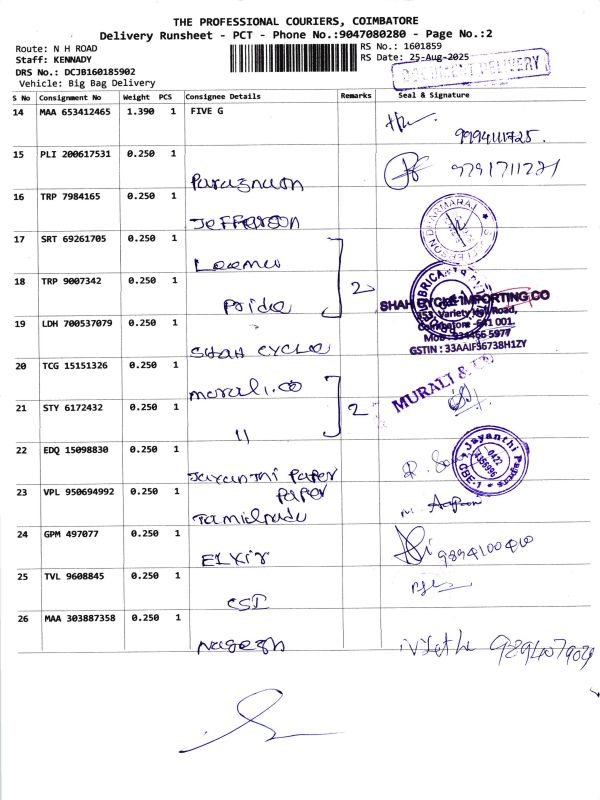 THE PROFESSIONAL COURIERS, COIMBATORE
Delivery Runsheet - PCT - Phone No.:9047080280 - Page No.:2
Route: N H ROAD
RS No.: 1601859
Staff: KENNADY
RS Date: 25-Aug-2025
DOCUMENT DELIVERY
DRS No.: DCJB160185902
Vehicle: Big Bag Delivery
S No Consignment No Weight PCS Consignee Details Remarks Seal & Signature
14 MAA 653412465 1.390 1 FIVE G
9994111725.
15 PLI 200617531 0.250 1
9791711271
16 TRP 7984165 0.250 1 Jefferson
17 SRT 69261705 0.250 1
18 TRP 9007342 0.250 1 Pride 2
SHAH CYCLE IMPORTING CO
153, Variety Hall Road,
Coimbatore - 641 001.
GSTIN : 33AAIFS6738H1ZY
19 LDH 700537079 0.250 1 SHAH CYCLE
20 TCG 15151326 0.250 1 Murali.co
MURALI & CO
21 STY 6172432 0.250 1 11 2
22 EDQ 15098830 0.250 1 Jayanthi Paper
Jayanthi Papers
0422
CBE-1
23 VPL 950694992 0.250 1 Paper
Tamilnadu
24 GPM 497077 0.250 1 Elxir
9894100400
25 TVL 9608845 0.250 1 CSI
26 MAA 303887358 0.250 1 Nagesh